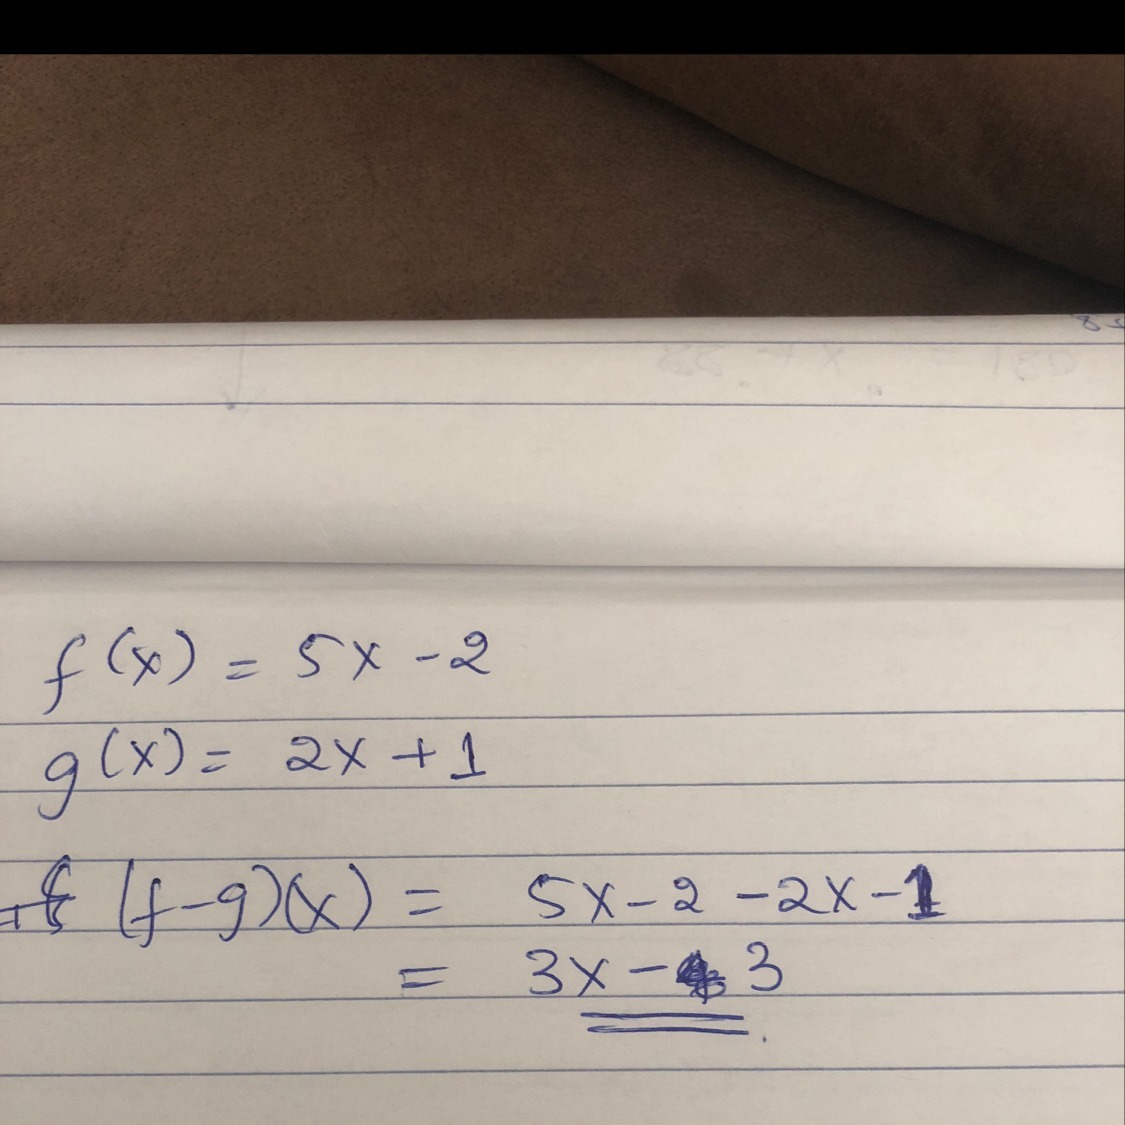 f(x) = 5x - 2
g(x) = 2x + 1
(f-g)(x) = 5x - 2 - 2x - 1
= 3x - 3